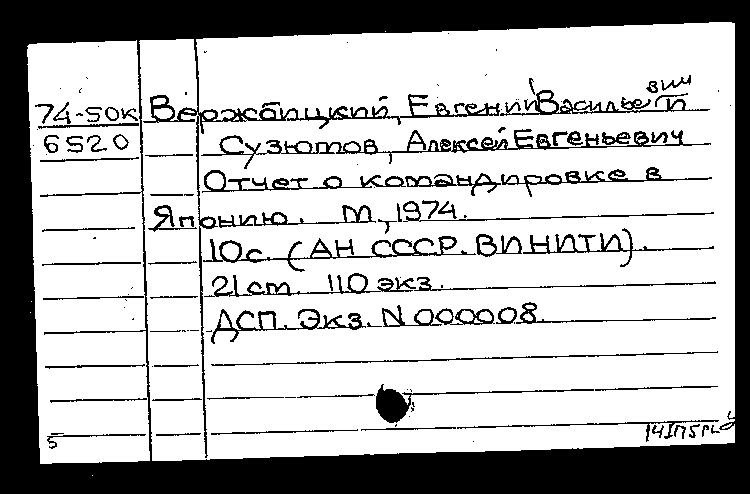 74-50к Вержбицкий, Евгений Васильевич и
6520 Сузютов, Алексей Евгеньевич
Отчет о командировке в
Японию. М., 1974.
10с. (АН СССР. ВИНИТИ).
21 cm. 110 экз.
ДСП. Экз. N 000008.
5